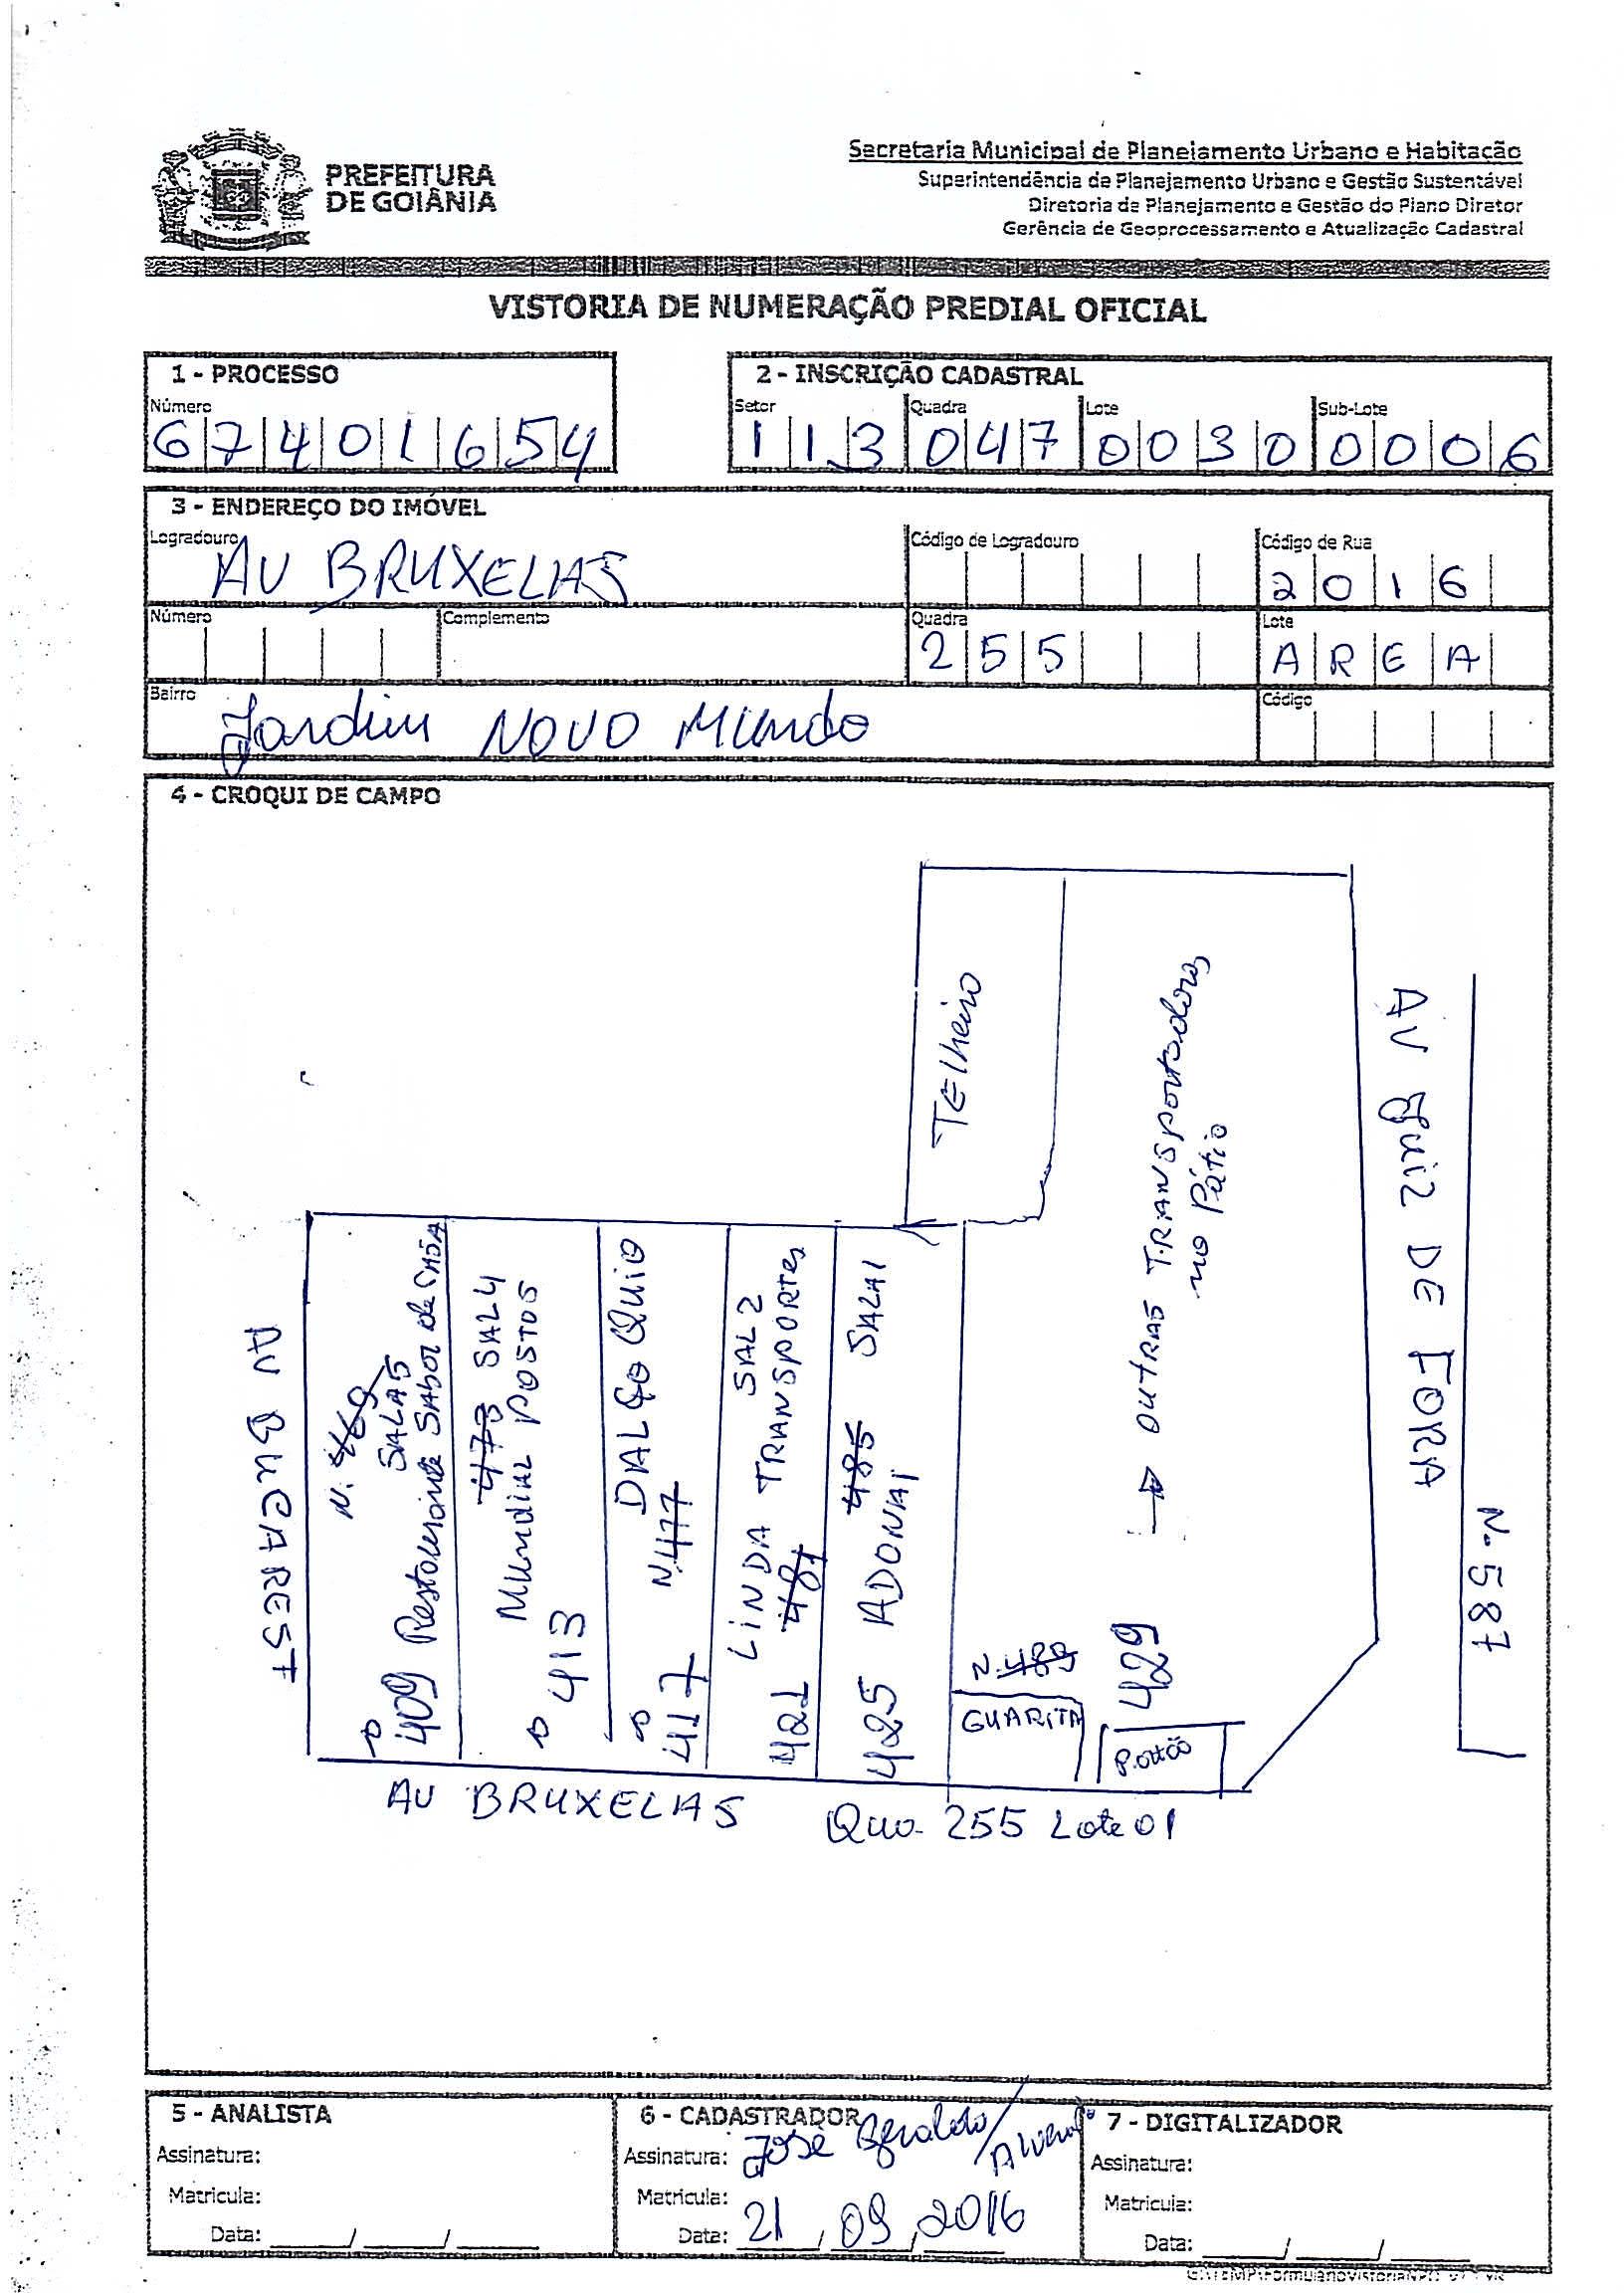 PREFEITURA
DE GOIÂNIA
Secretaria Municipal de Planejamento Urbano e Habitação
Superintendência de Planejamento Urbano e Gestão Sustentável
Diretoria de Planejamento e Gestão do Plano Diretor
Gerência de Geoprocessamento e Atualização Cadastral
VISTORIA DE NUMERAÇÃO PREDIAL OFICIAL
1 - PROCESSO
Número
67401654
2 - INSCRIÇÃO CADASTRAL
Setor Quadra Lote Sub-Lote
113 047 0030 0006
3 - ENDEREÇO DO IMÓVEL
Logradouro Código de Logradouro Código de Rua
AV BRUXELAS 2016
Número Complemento Quadra Lote
255 AREA
Bairro Código
Jardim NOVO MUNDO
4 - CROQUI DE CAMPO
TElheiro
OUTRAS TRANSPORTADORAS
no Pátio
AV JUIZ DE FORA
N. 587
AV BUCAREST
N. 469
SALA5
409 Restourante Sabor de
473 SAL4
Mundial POSTOS
413
DIALGO QUIO
N.477
417
SAL 2
LINDA TRANSPORTES
481
421
485 SALA1
425 ADONAI
N.489
429
GUARITA
Portão
AV BRUXELAS
Qua. 255 Lote 01
5 - ANALISTA
Assinatura:
Matricula:
Data: ___/___/___
6 - CADASTRADOR
Assinatura: José Geraldo
Matricula:
Data: 21/09/2016
7 - DIGITALIZADOR
Assinatura:
Matricula:
Data: ___/___/___